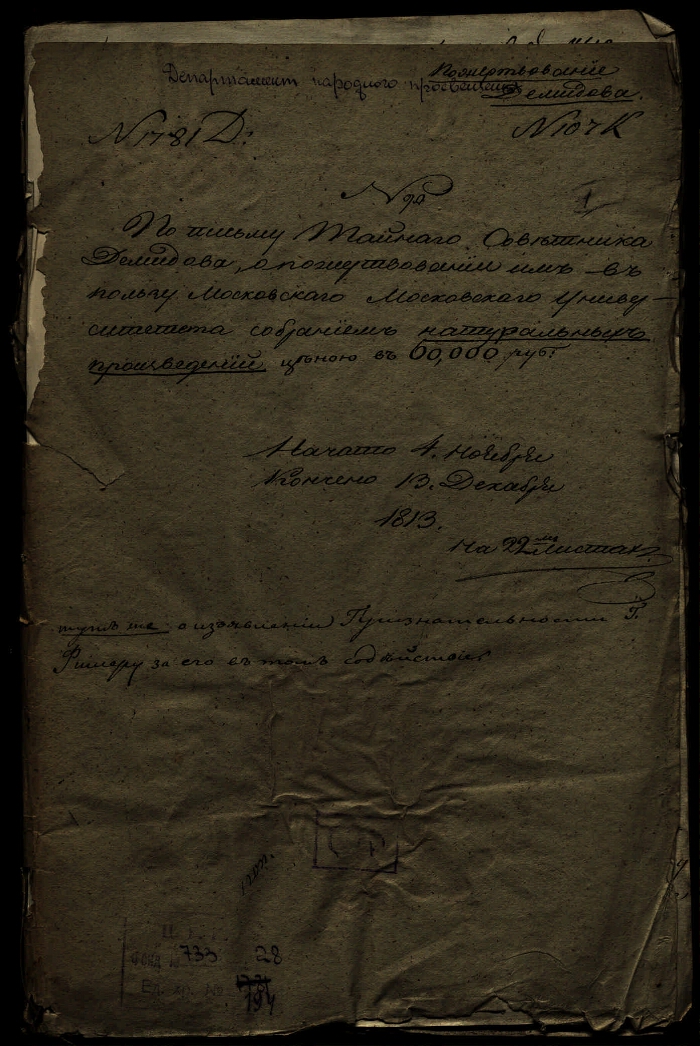 Пожертвованіе
Департамент народного просвещения Демидова.
N 1781 Д.
N 107 К
1
По письму Тайнаго Совѣтника
Демидова, о пожертвованіи имъ въ
пользу Московскаго Московскаго Универ-
ситета собраніемъ натуральныхъ
произведеній цѣною въ 60,000 руб:
Начато 4. Ноября
Кончено 13. Декабря
1813.
на 22мъ листахъ.
тутъ же о изъявленіи Признательности Г.
Фишеру за его въ томъ содѣйствіе
Фонд № 733 28
Ед. хр. №